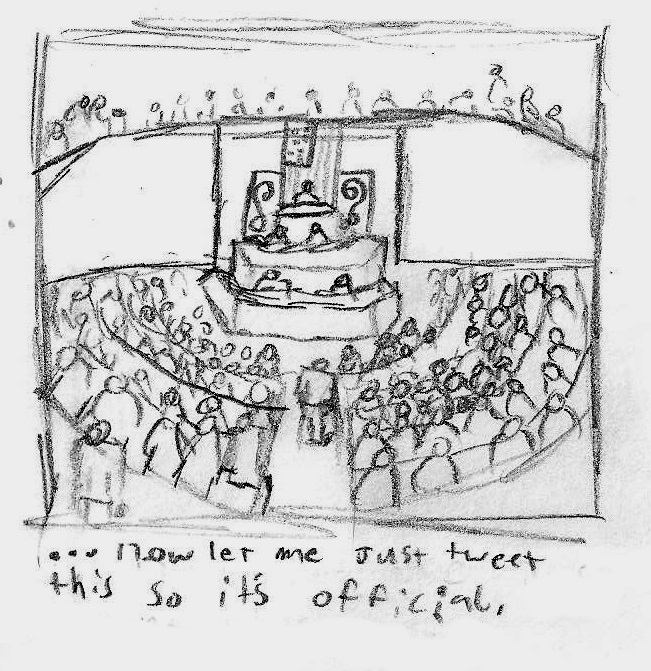 ... now let me just tweet
this so it's official.